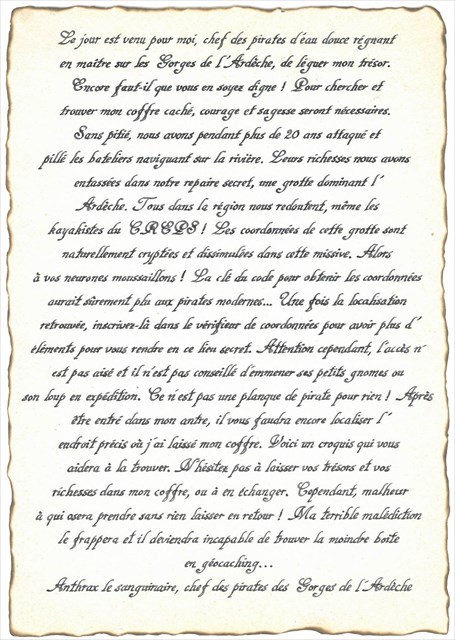 Le jour est venu pour moi, chef des pirates d'eau douce régnant
en maître sur les Gorges de l'Ardèche, de léguer mon trésor.
Encore faut-il que vous en soyez digne ! Pour chercher et
trouver mon coffre caché, courage et sagesse seront nécessaires.
Sans pitié, nous avons pendant plus de 20 ans attaqué et
pillé les bateliers naviguant sur la rivière. Leurs richesses nous avons
entassées dans notre repaire secret, une grotte dominant l'
Ardèche. Tous dans la région nous redoutent, même les
kayakistes du CREPS ! Les coordonnées de cette grotte sont
naturellement cryptées et dissimulées dans cette missive. Alors
à vos neurones moussaillons ! La clé du code pour obtenir les coordonnées
aurait sûrement plu aux pirates modernes... Une fois la localisation
retrouvée, inscrivez-là dans le vérifieur de coordonnées pour avoir plus d'
éléments pour vous rendre en ce lieu secret. Attention cependant, l'accès n'
est pas aisé et il n'est pas conseillé d'emmener ses petits gnomes ou
son loup en expédition. Ce n'est pas une planque de pirate pour rien ! Après
être entré dans mon antre, il vous faudra encore localiser l'
endroit précis où j'ai laissé mon coffre. Voici un croquis qui vous
aidera à la trouver. N'hésitez pas à laisser vos trésors et vos
richesses dans mon coffre, ou à en échanger. Cependant, malheur
à qui osera prendre sans rien laisser en retour ! Ma terrible malédiction
le frappera et il deviendra incapable de trouver la moindre boîte
en géocaching...
Anthrax le sanguinaire, chef des pirates des Gorges de l'Ardèche